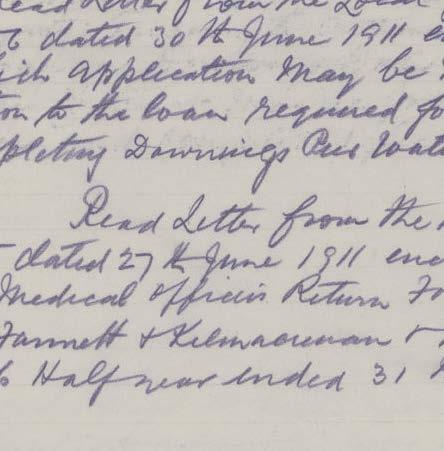 Read Letter from the Local
dated 30th June 1911
Application May be
to the loan required
Downings Pier Wat
Read Letter from the
dated 27th June 1911 enc
Medical Officers Return
Fannett & Kilmacrenan &
Half year ended 31